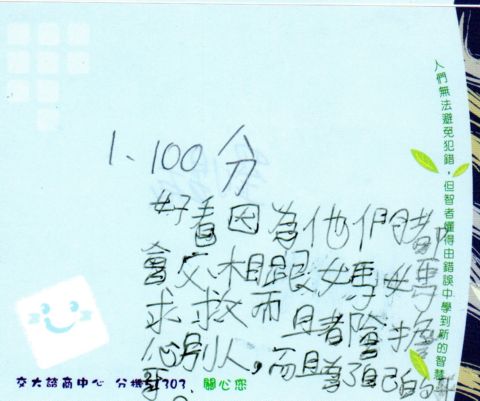 1、100分
好看因為他們都
會交相跟媽媽
求救而且都會擔
心別人，而且為了自己的
人們無法避免犯錯，但智者懂得由錯誤中學到新的智慧
交大諮商中心 分機51303, 關心您